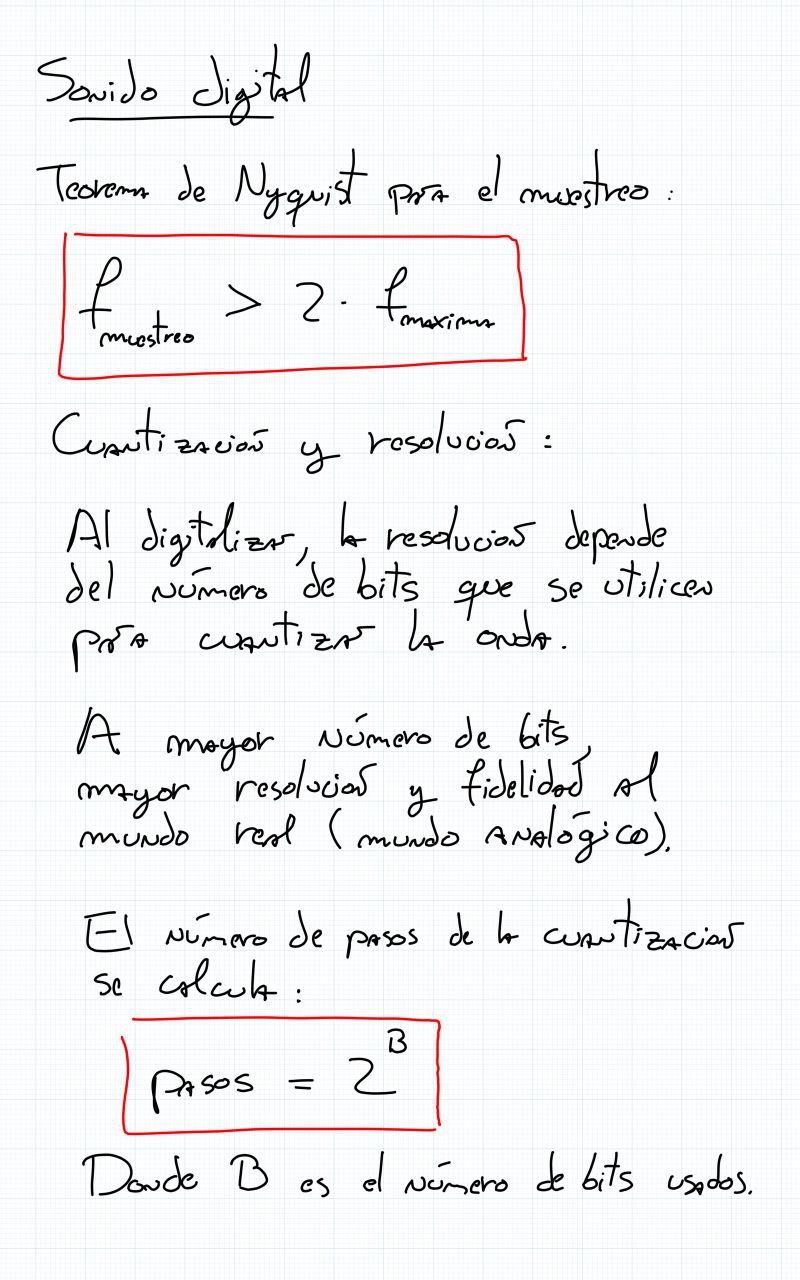 Sonido digital
Teorema de Nyquist para el muestreo :
f muestreo > 2 · f maxima
Cuantización y resolución :
Al digitalizar, la resolución depende
del número de bits que se utilicen
para cuantizar la onda.
A mayor número de bits,
mayor resolución y fidelidad al
mundo real (mundo analógico).
El número de pasos de la cuantización
se calcula :
pasos = 2^B
Donde B es el número de bits usados.